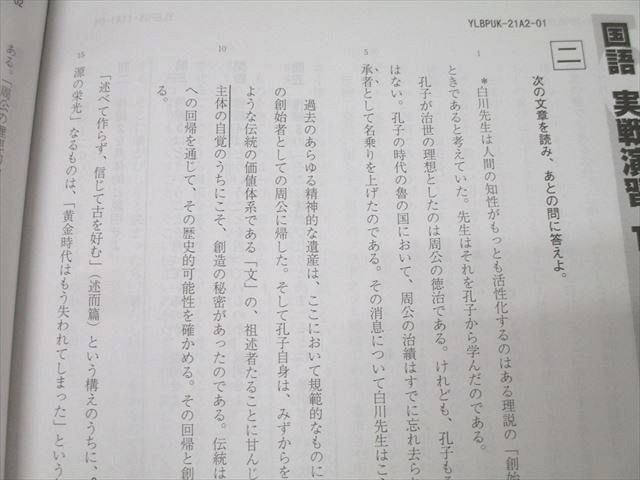 YLBPUK-21A2-01
国語 実戦演習
二
次の文章を読み、あとの問に答えよ。
1
*白川先生は人間の知性がもっとも活性化するのはある理説の「創始
ときであると考えていた。先生はそれを孔子から学んだのである。
孔子が治世の理想としたのは周公の徳治である。けれども、孔子も
はない。孔子の時代の魯の国において、周公の治績はすでに忘れ去ら
5
承者として名乗りを上げたのである。その消息について白川先生はこ
過去のあらゆる精神的な遺産は、ここにおいて規範的なものに
の創始者としての周公に帰した。そして孔子自身は、みずからを
ような伝統の価値体系である「文」の、祖述者たることに甘んじ
10
主体の自覚のうちにこそ、創造の秘密があったのである。伝統は
への回帰を通じて、その歴史的可能性を確かめる。その回帰と創
る。
「述べて作らず、信じて古を好む」（述而篇）という構えのうちに、
15
源の栄光」なるものは、「黄金時代はもう失われてしまった」という
ある。「周公の